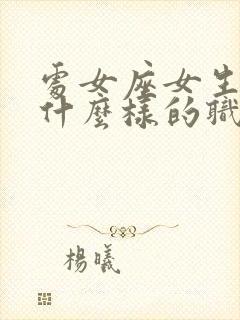 處女座女生
什麼樣的職
楊曦